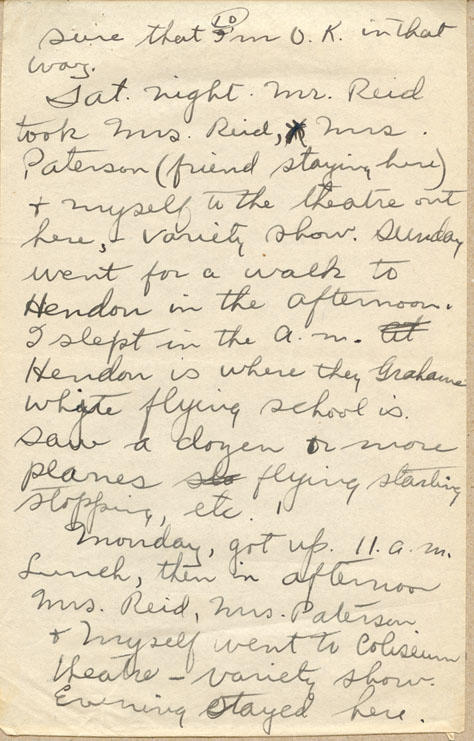 10
sure that I'm O.K. in that
way.
Sat. night Mr. Reid
took Mrs. Reid, Mrs.
Paterson (friend staying here)
+ myself to the theatre out
here, - variety show. Sunday
went for a walk to
Hendon in the afternoon.
I slept in the a.m. At
Hendon is where they Grahame
Whyte flying school is.
saw a dozen or more
planes sto flying starting
stopping, etc.
Monday, got up 11.a.m.
Lunch, then in afternoon
Mrs. Reid, Mrs. Paterson
+ myself went to Coliseum
theatre - variety show.
Evening stayed here.